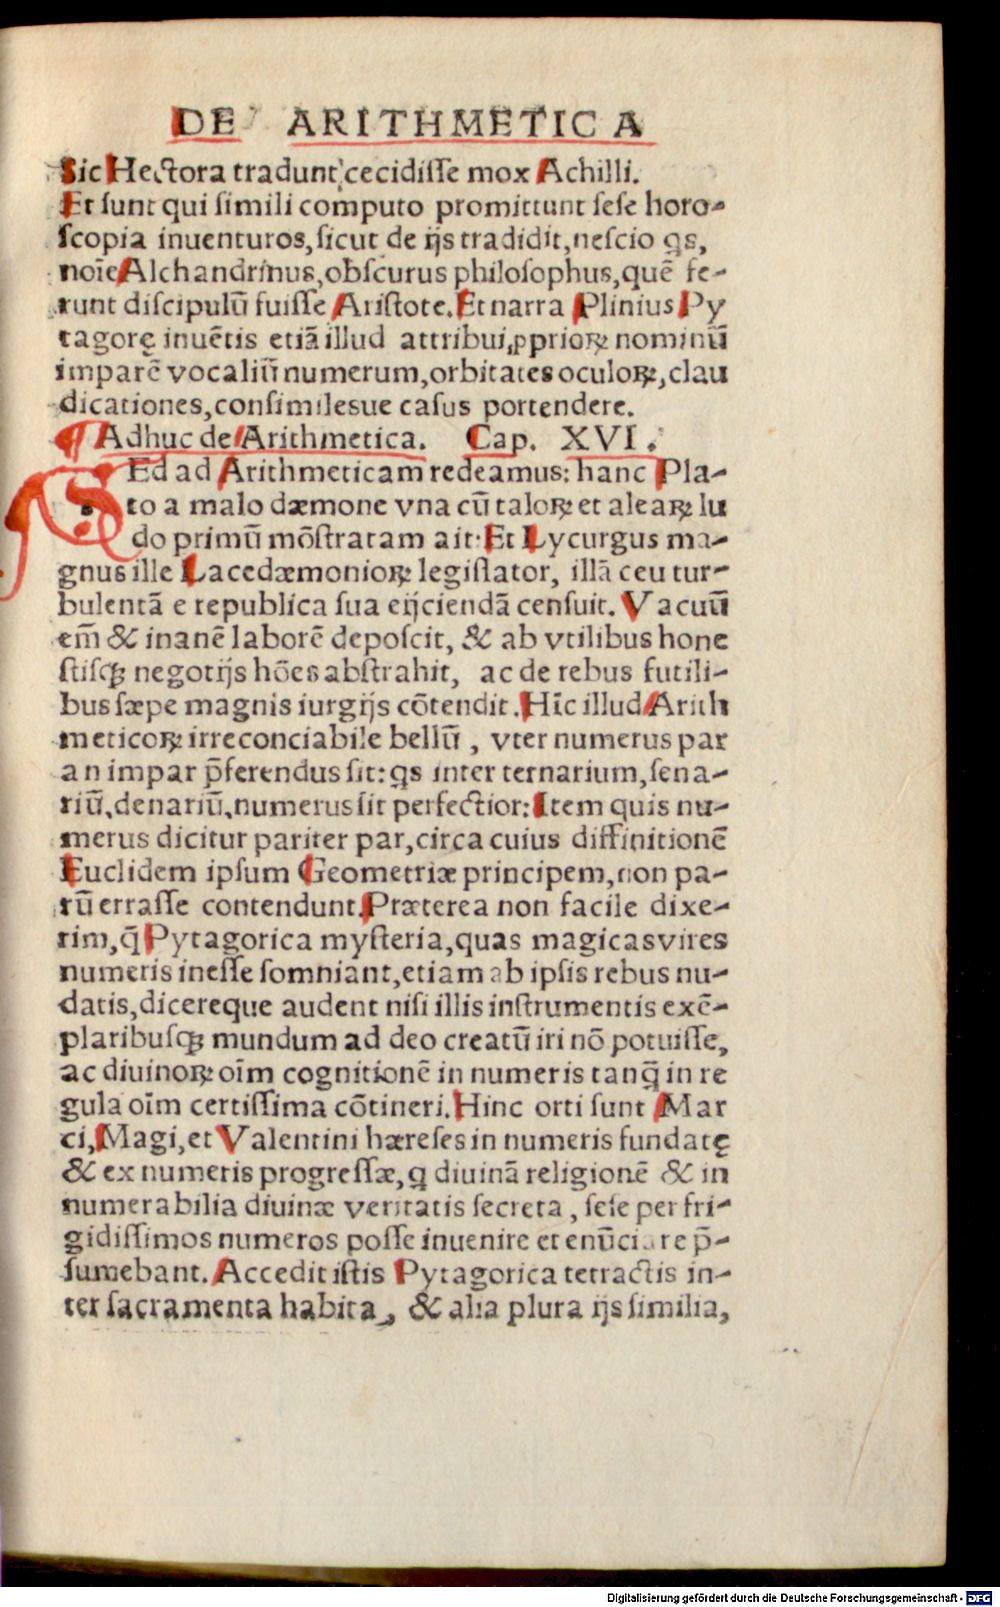 DE ARITHMETICA
Sic Hectora tradunt cecidisse mox Achilli.
Et sunt qui simili computo promittunt sese horo-
scopia inuenturos, sicut de ijs tradidit, nescio qs,
noīe Alchandrinus, obscurus philosophus, quē fe-
runt discipulū fuisse Aristote. Et narra Plinius Py
tagorę inuētis etiā illud attribui, ꝓprioꝝ nominū
imparē vocaliū numerum, orbitates oculoꝝ, clau
dicationes, consimilesue casus portendere.
¶ Adhuc de Arithmetica. Cap. XVI.
SEd ad Arithmeticam redeamus: hanc Pla-
to a malo dæmone vna cū taloꝝ et aleaꝝ lu
do primū mōstratam ait: Et Lycurgus ma-
gnus ille Lacedæmonioꝝ legislator, illā ceu tur-
bulentā e republica sua eijciendā censuit. Vacuū
em̄ & inanē laborē deposcit, & ab vtilibus hone
stisqꝫ negotijs hōes abstrahit, ac de rebus futili-
bus sæpe magnis iurgijs cōtendit. Hīc illud Arith
meticoꝝ irreconciabile bellū, vter numerus par
an impar p̄ferendus sit: qs inter ternarium, sena-
riū, denariū, numerus sit perfectior: Item quis nu-
merus dicitur pariter par, circa cuius diffinitionē
Euclidem ipsum Geometriæ principem, non pa-
rū errasse contendunt. Præterea non facile dixe-
rim, q̄ Pytagorica mysteria, quas magicas vires
numeris inesse somniant, etiam ab ipsis rebus nu-
datis, dicereque audent nisi illis instrumentis exē-
plaribusqꝫ mundum ad deo creatū iri nō potuisse,
ac diuinoꝝ oīm cognitionē in numeris tanq̄ in re
gula oīm certissima cōtineri. Hinc orti sunt Mar
ci, Magi, et Valentini hæreses in numeris fundatę
& ex numeris progressæ, q diuinā religionē & in
numerabilia diuinæ veritatis secreta, sese per fri-
gidissimos numeros posse inuenire et enūciare p̄-
sumebant. Accedit istis Pytagorica tetractis in-
ter sacramenta habita, & alia plura ijs similia,
Digitalisierung gefördert durch die Deutsche Forschungsgemeinschaft - DFG